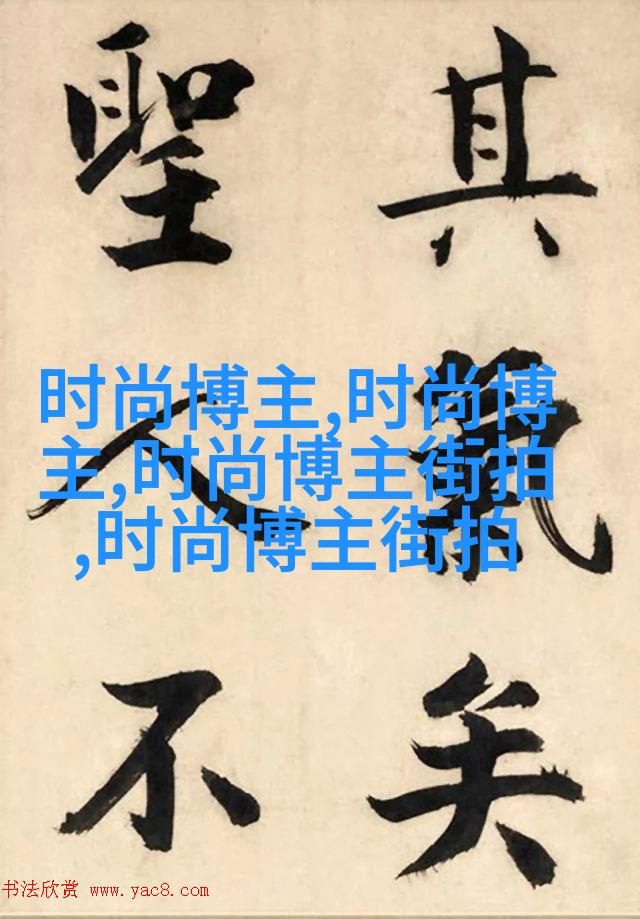 其矣
聖人不
时尚博主,时尚博
主,时尚博主街拍
,时尚博主街拍
书法欣赏 www.yac8.com